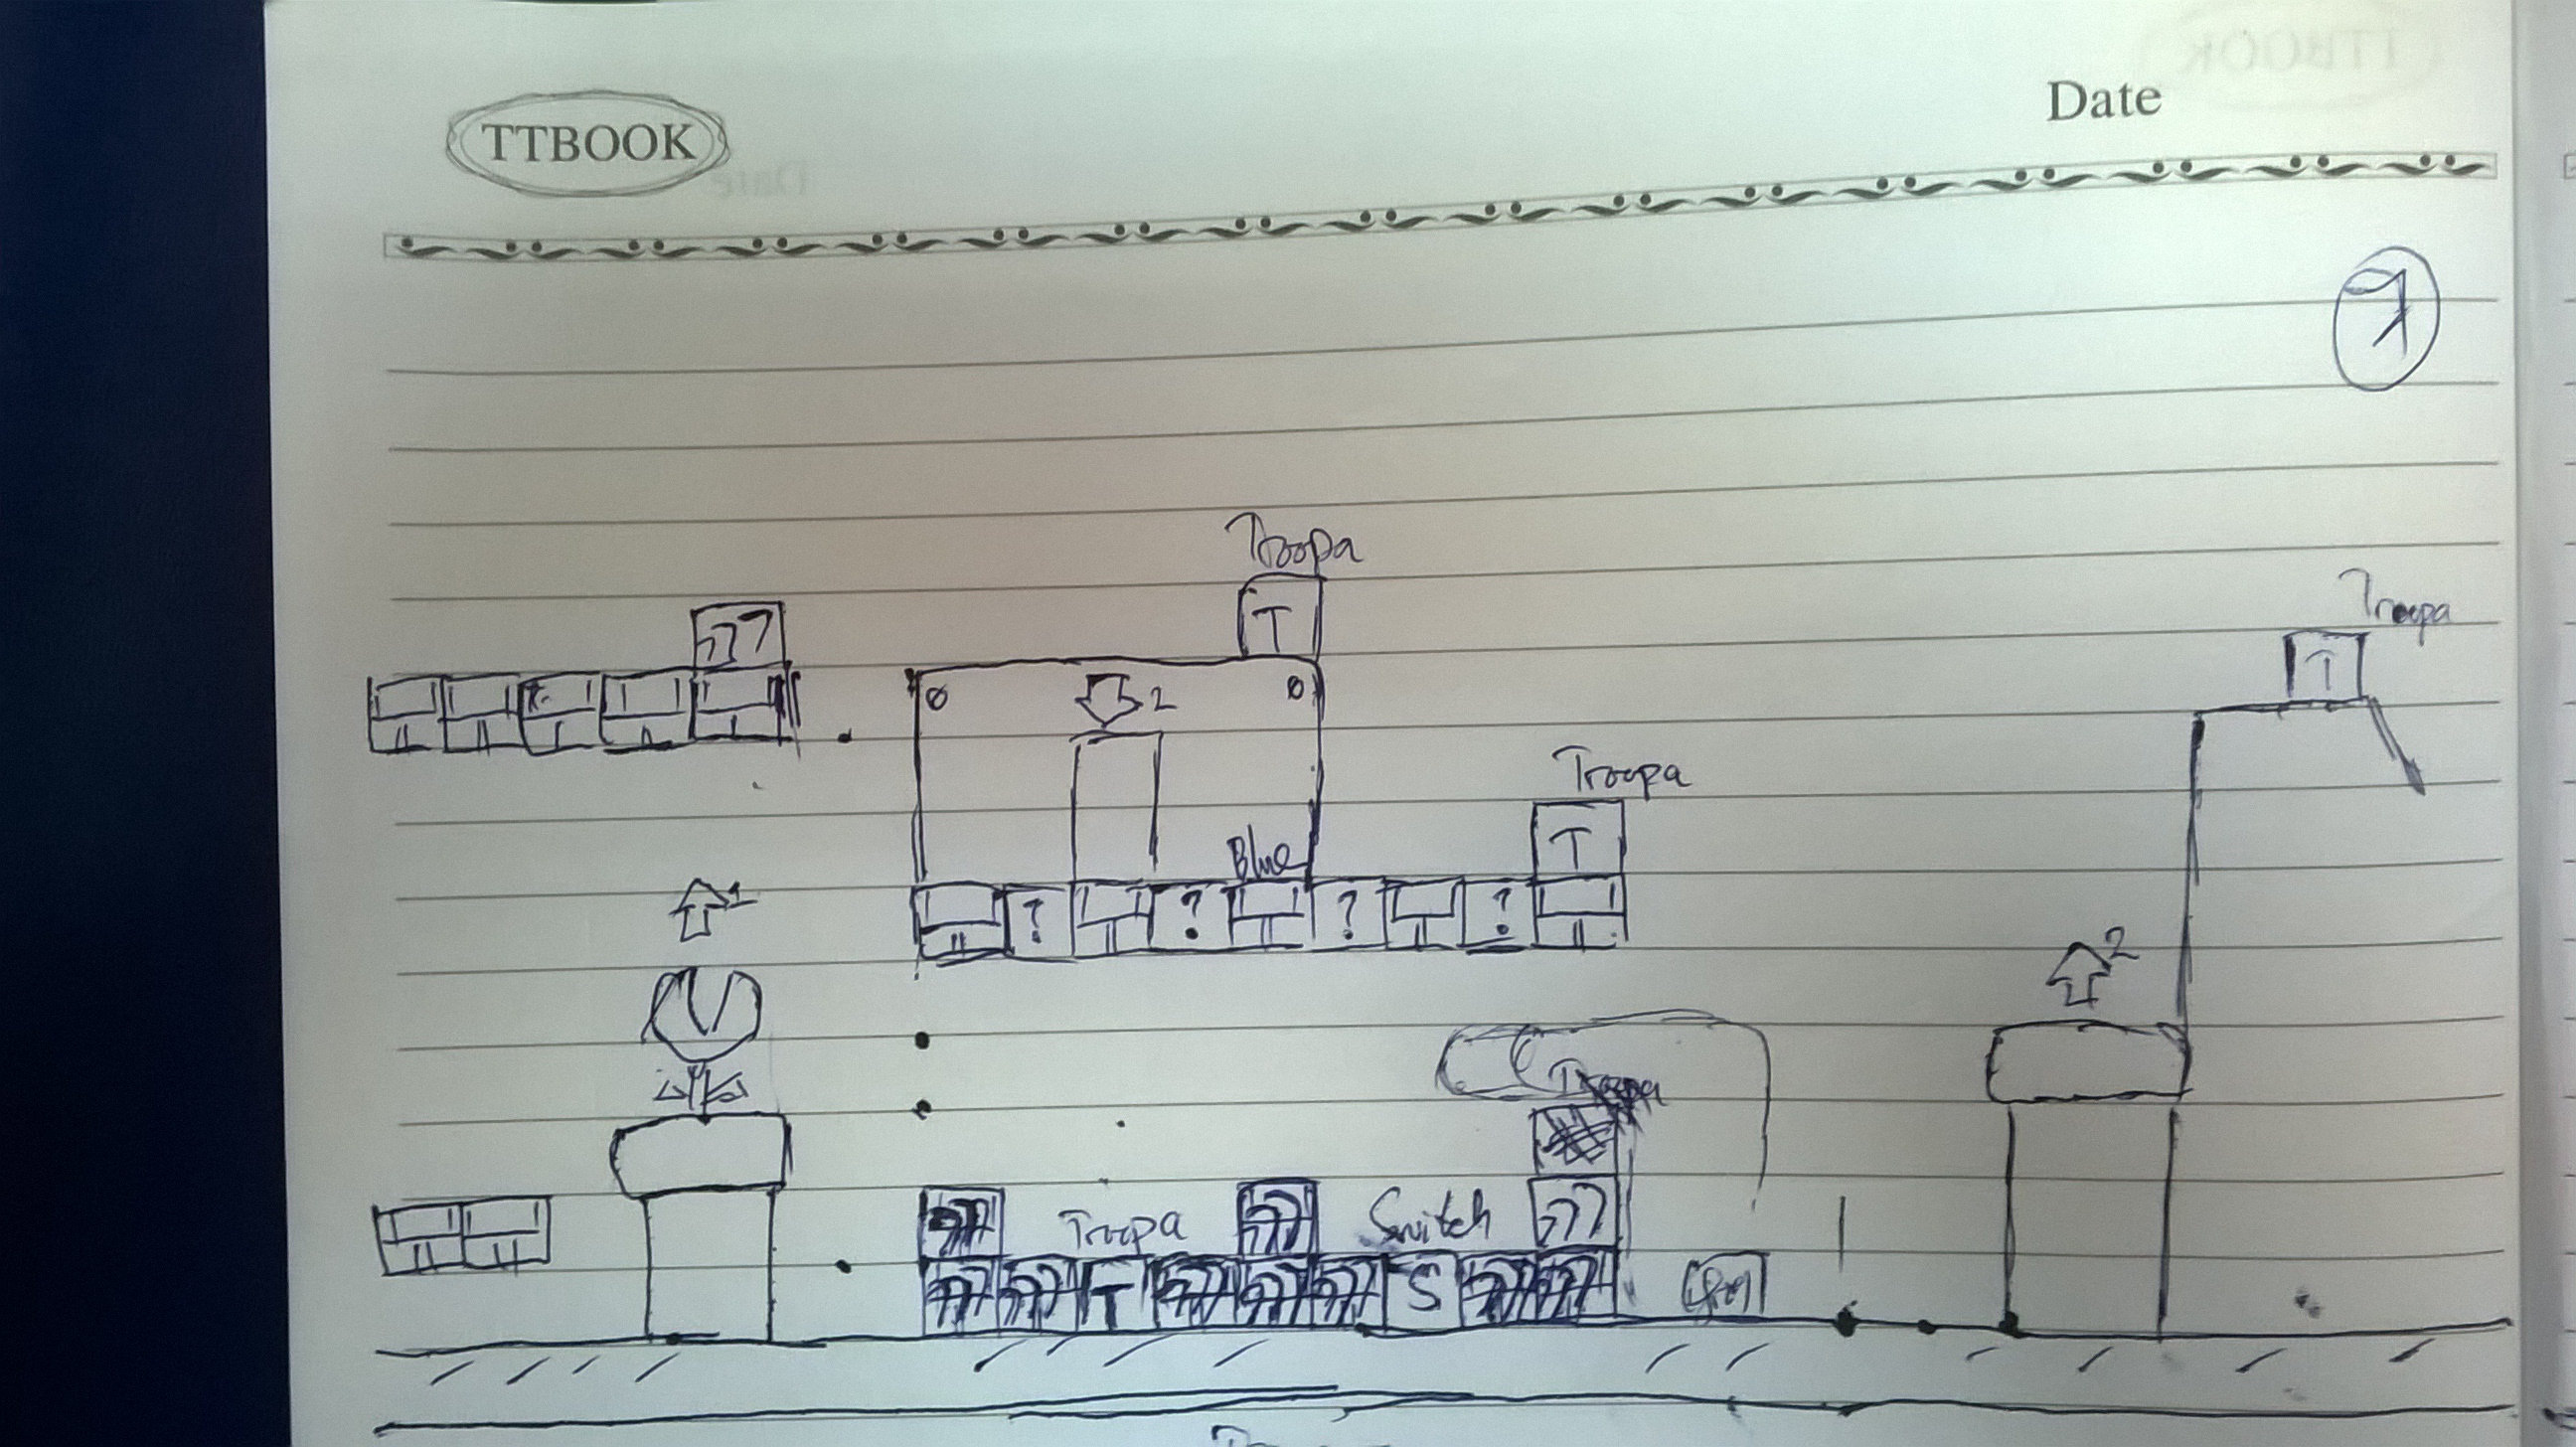 TTBOOK
Date
7
Troopa
T
Troopa
T
2
Troopa
T
Blue
1
? ? ? ?
2
Troopa
Troopa
Switch
T
S